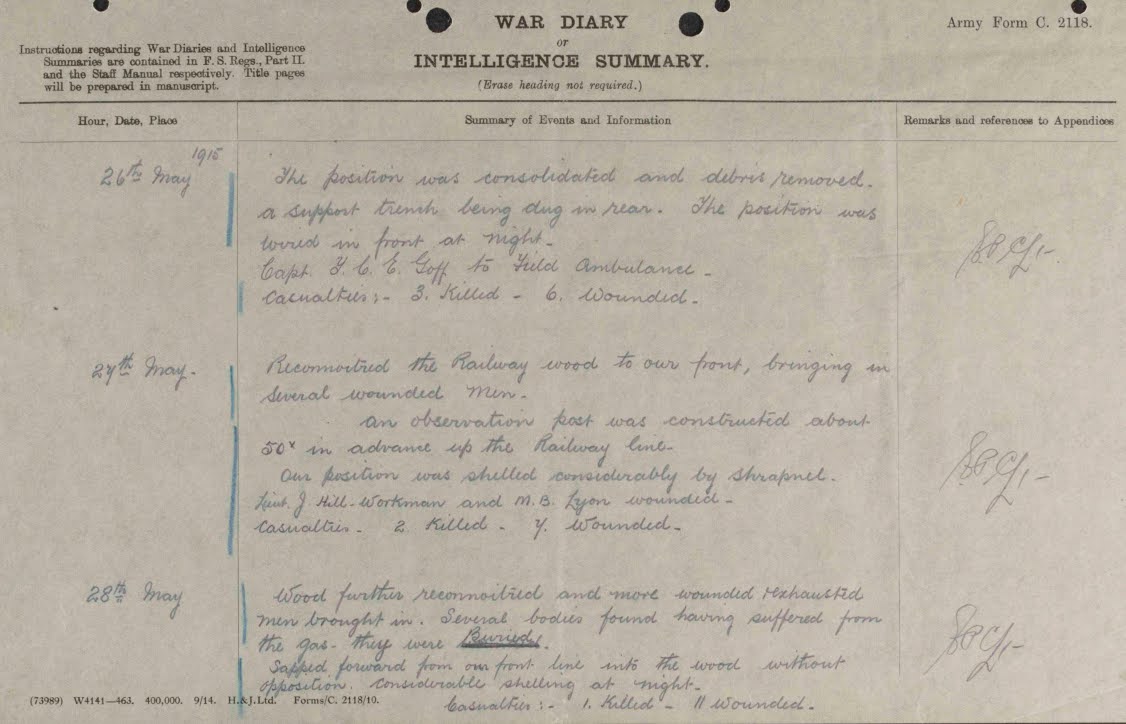 WAR DIARY
or
INTELLIGENCE SUMMARY.
(Erase heading not required.)
Army Form C. 2118.
Instructions regarding War Diaries and Intelligence
Summaries are contained in F. S. Regs., Part II.
and the Staff Manual respectively. Title pages
will be prepared in manuscript.
Hour, Date, Place
Summary of Events and Information
Remarks and references to Appendices
1915
26th May
The position was consolidated and debris removed.
a support trench being dug in rear. The position was
wired in front at night-
Capt. T. C. E. Goff to Field Ambulance -
Casualties:- 3. Killed - 6. Wounded -
27th May -
Reconnoitred the Railway wood to our front, bringing in
several wounded men -
an observation post was constructed about
50x in advance up the Railway line -
Our position was shelled considerably by shrapnel.
Lieut. J. Hill-Workman and M. B. Lyon wounded -
Casualties - 2 Killed - 7. Wounded -
28th May
Wood further reconnoitred and more wounded & exhausted
men brought in. Several bodies found having suffered from
the gas - they were Buried.
Sapped forward from our front line into the wood without
opposition. Considerable shelling at night -
Casualties :- 1. Killed - 11 Wounded -
(73989) W4141—463. 400,000. 9/14. H.&J.Ltd. Forms/C. 2118/10.